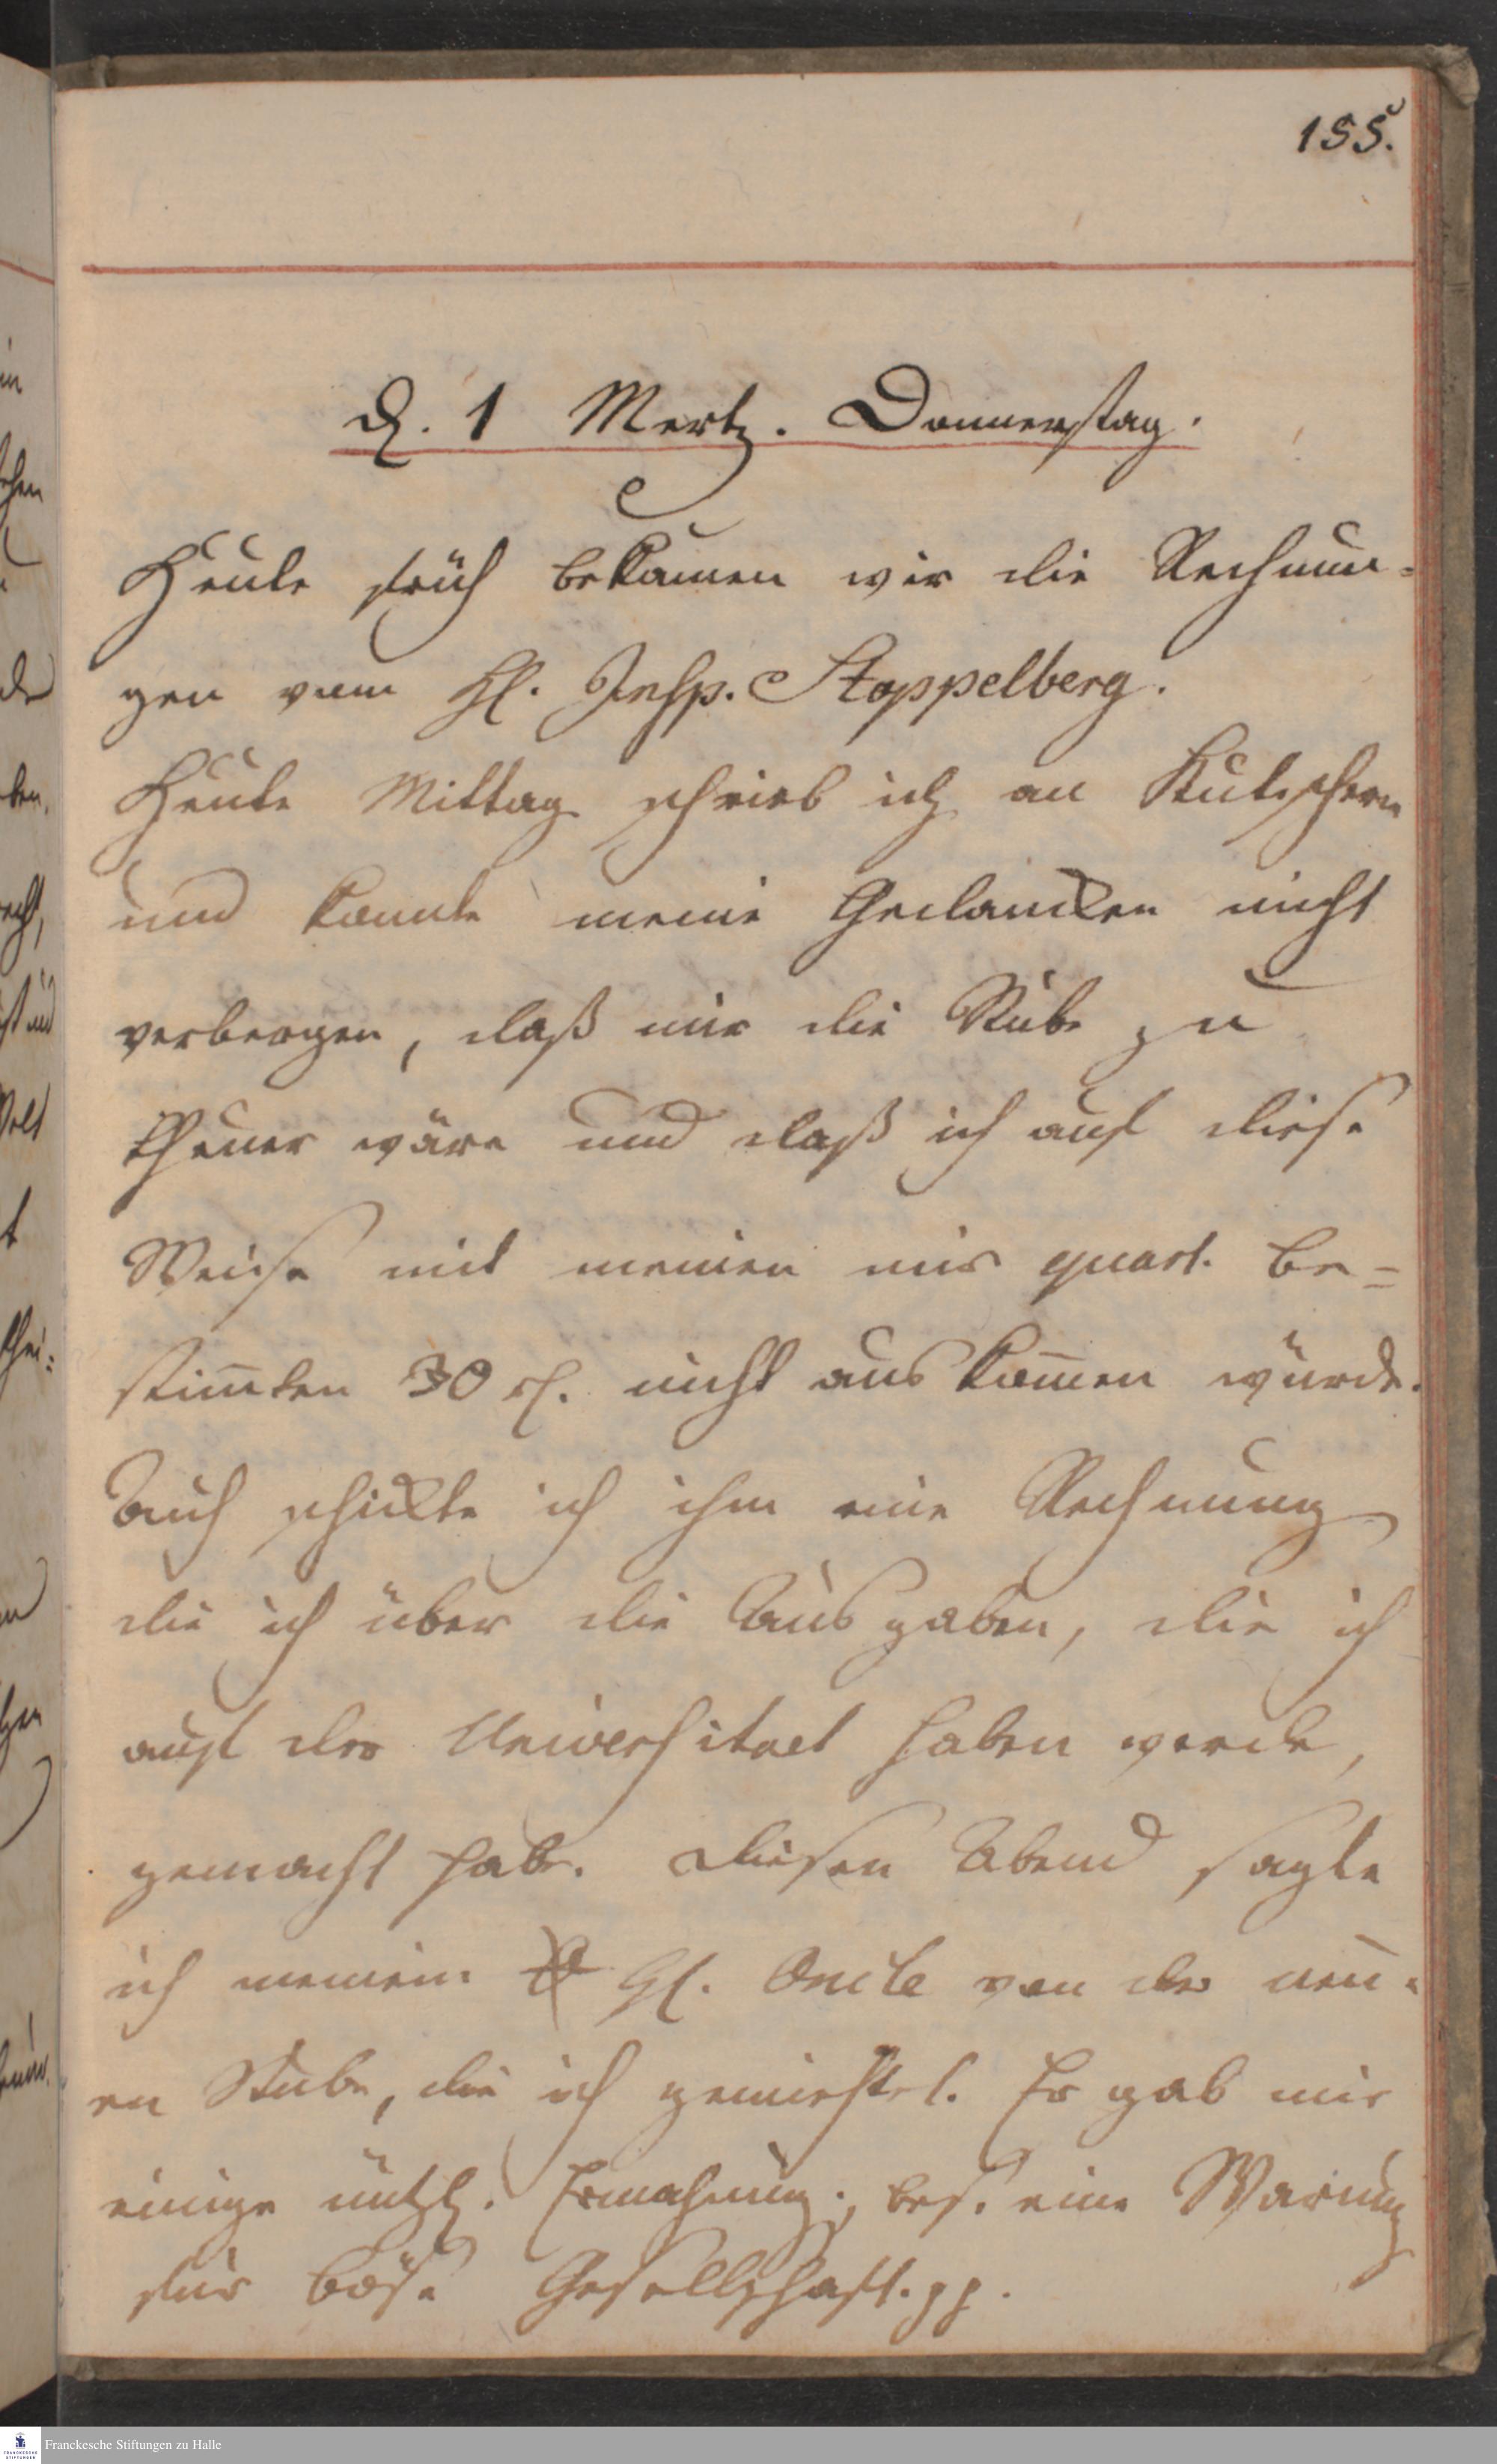 155.
D. 1 Mertz. Donnerstag.
Heute früh bekamen wir die Rechnun-
gen vom H. Insp. Stoppelberg.
Heute Mittag schrieb ich an Kutschern
und konnte meine Gedancken nicht
verbergen, daß mir die Stube zu
theuer wäre und daß ich auf diese
Weise mit meinen mir quart. be=
stim̄ten 30 rh. nicht aus kom̄en würde.
Auch schickte ich ihm eine Rechnung
die ich über die Ausgaben, die ich
auf der Universitaet haben werde,
gemacht habe. Diesen Abend sagte
ich meinem H. Oncle von der neu-
en Stube, die ich gemiethet. Er gab mir
einige nützl. Ermahnung., bes. eine Warnung
für böse Gesellschaft. pp.
Franckesche Stiftungen zu Halle
FRANCKESCHE
STIFTUNGEN